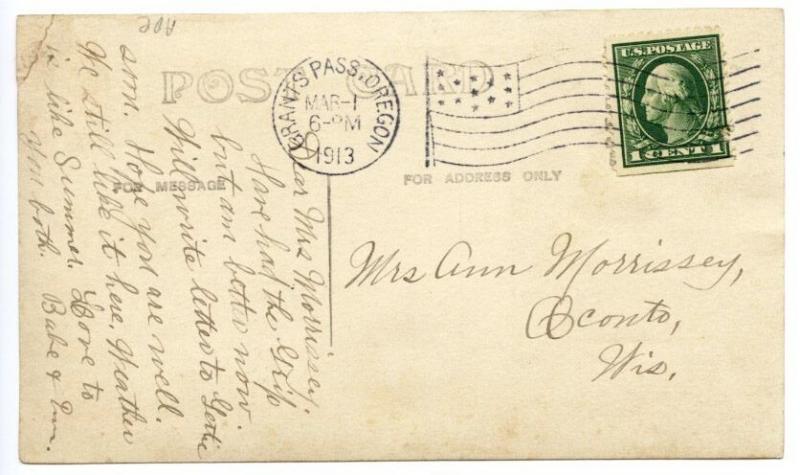 ADE
POST CARD
GRANTS PASS, OREGON
MAR-1
6-PM
1913
U.S. POSTAGE
1 CENT 1
FOR MESSAGE
FOR ADDRESS ONLY
Dear Mrs Morrissey.
Have had the Grip
but am better now.
Will write letter to Gertie
soon. Hope you are well.
We still like it here. Weather
is like Summer. Love to
you both. Babe & Em.
Mrs Ann Morrissey,
Oconto,
Wis.